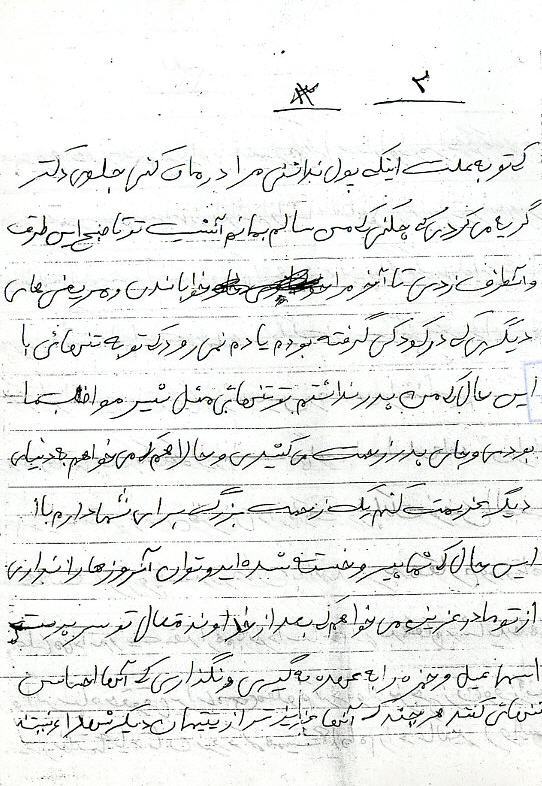 ۳
که تو به علت اینکه پول نداشتی مرا درمان کنی جلوی دکتر
گریه می کردی که چکنی که من سالم بمانم آنشب تو تا صبح این طرف
و آنطرف زدی تا آخر مرا خواباندن و مریضی های
دیگری که در کودکی گرفته بودم یادم نمی رود که تو به تنهائی با
این حال که من پدر نداشتم تو تنهایی مثل شیر مواظب ما
بودی و جای پدر زحمت می کشیدی و حالا هم که می خواهم به دنیای
دیگر عزیمت کنم یک زحمت بزرگ برای شما دارم با
این حال که شما پیر و خسته شده اید و توان آنروزها را نداری
از تو مادر عزیزم می خواهم که بعد از خداوند متعال تو سرپرستی
اسماعیل و حمزه را به عهده به گیری و نگذاری که آنها احساس
تنهائی کنند هر چند که آنها عزیزتر از یتیمان دیگر شهداء نیستند